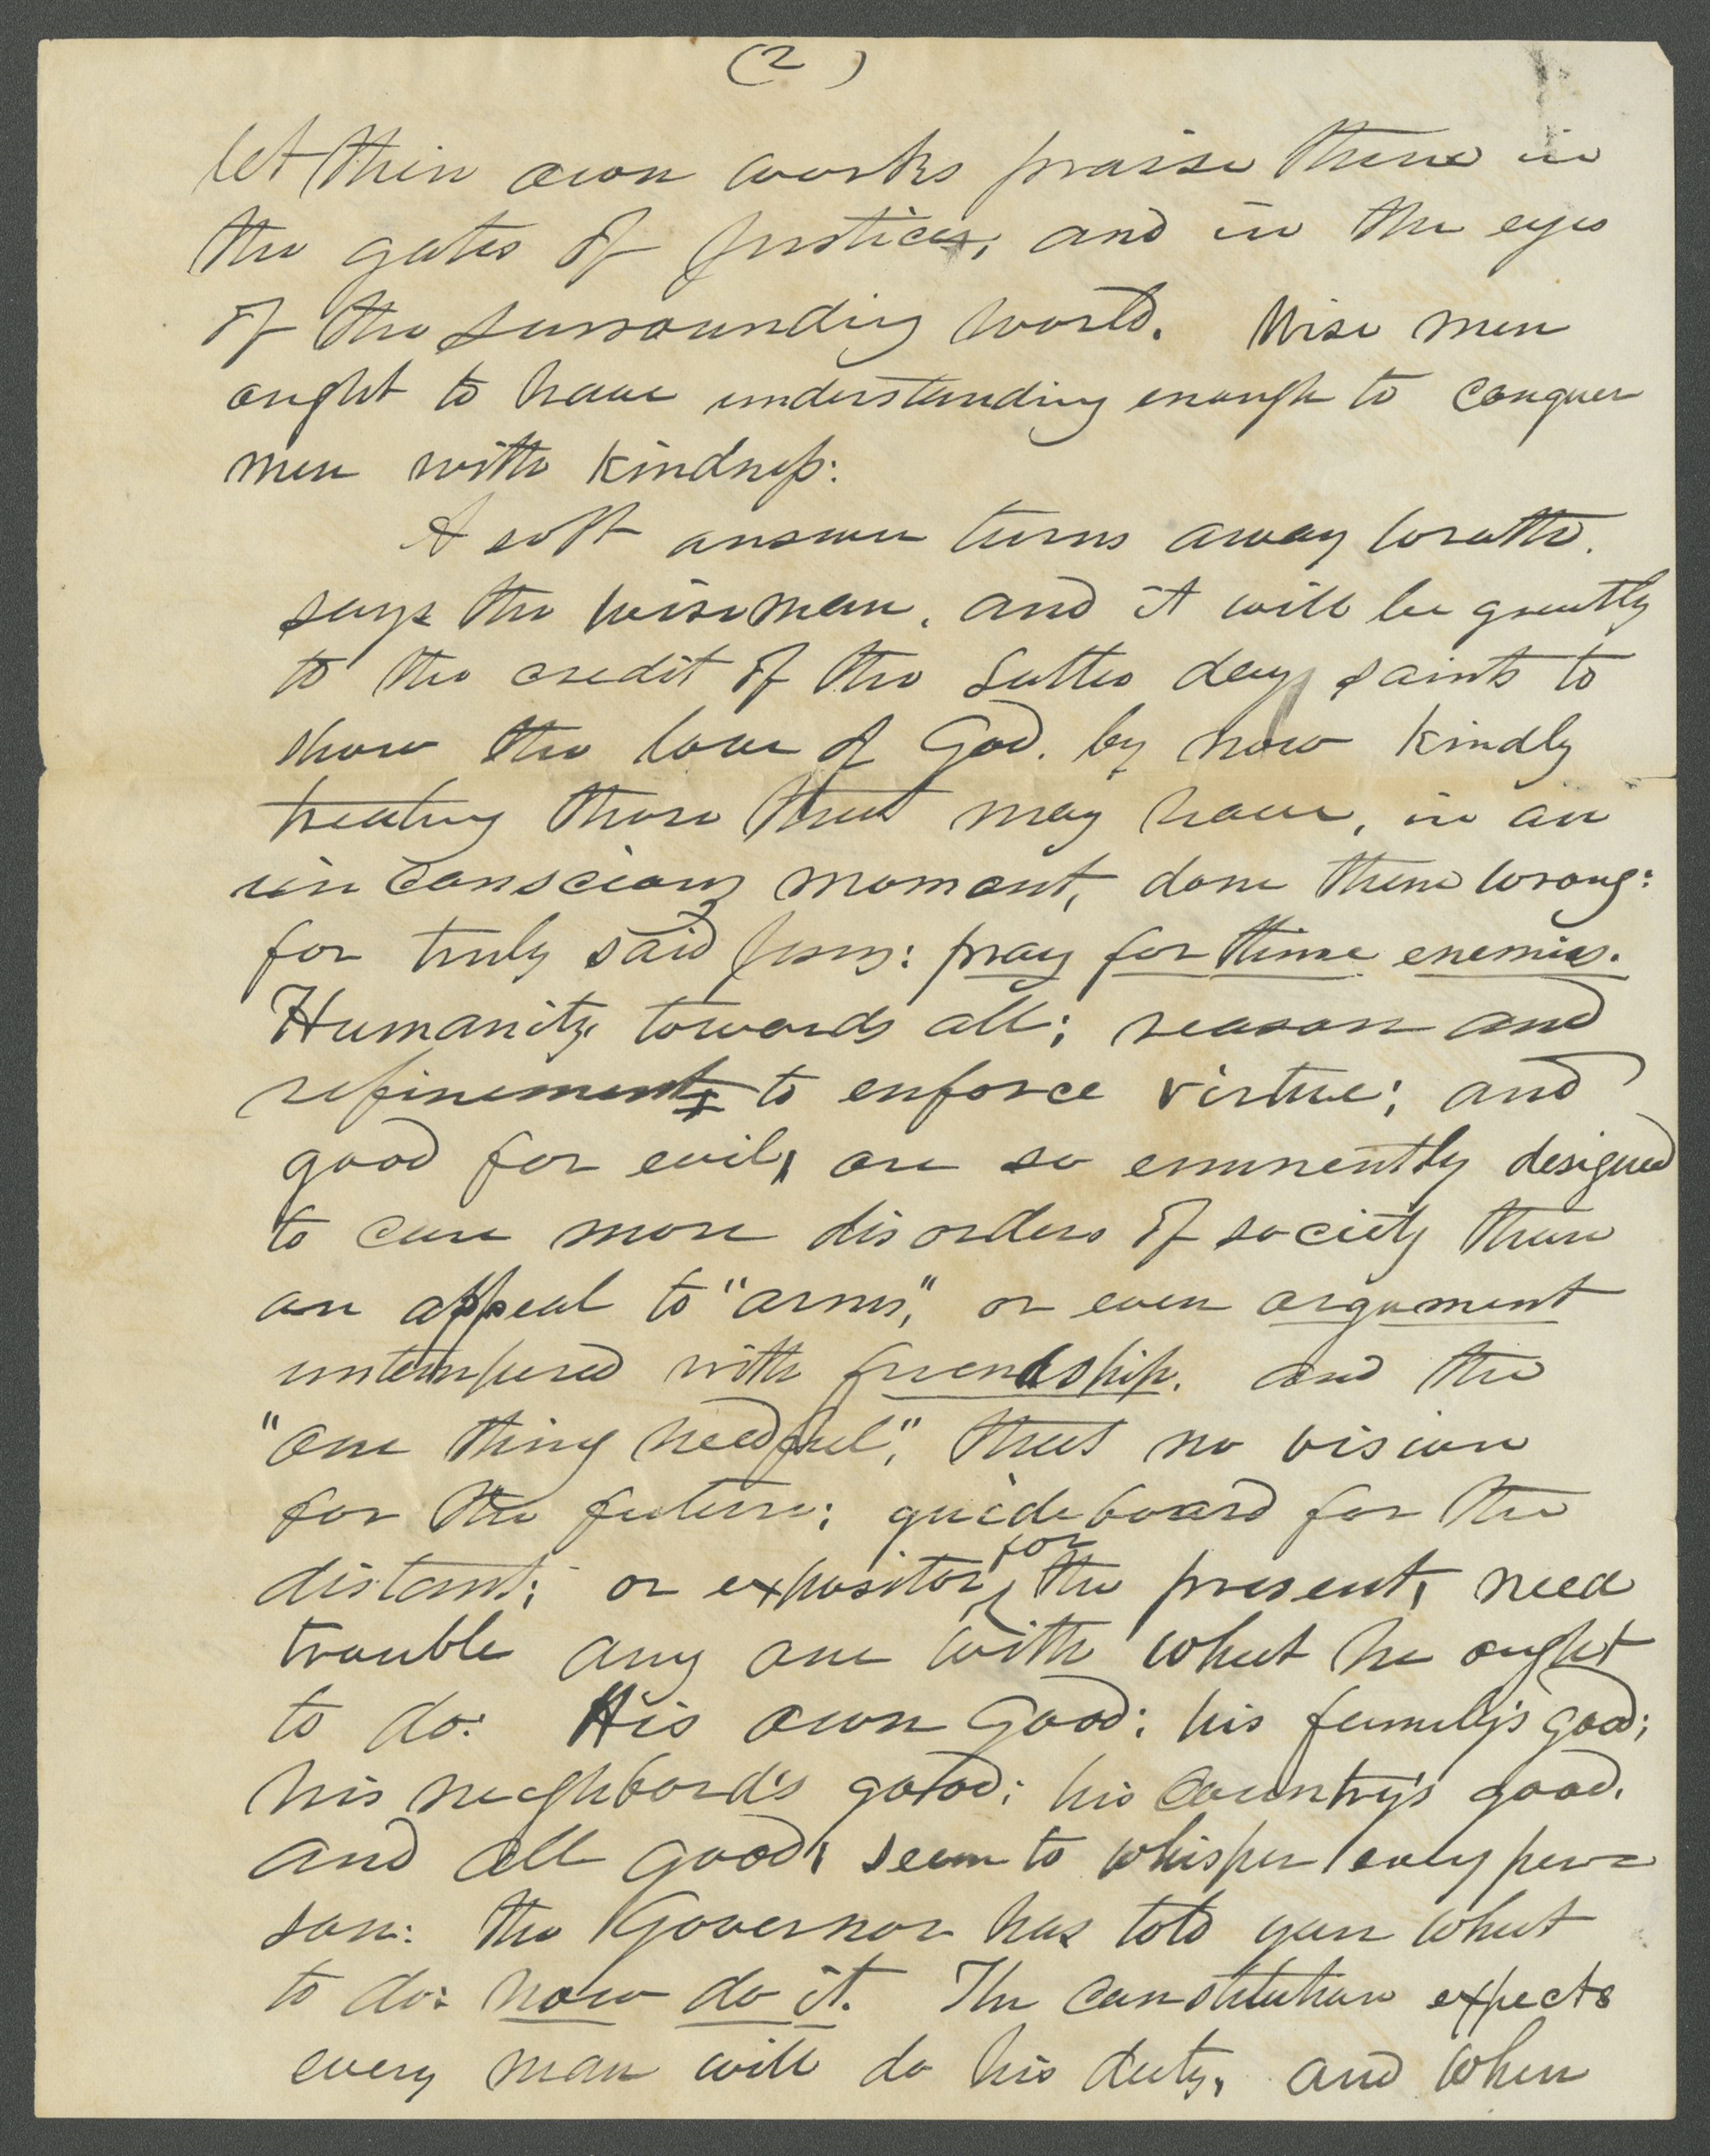 (2)
let their own works praise them in
the gates of justice, and in the eyes
of the surrounding world. Wise men
ought to have understanding enough to conquer
men with kindness:
A soft answer turns away wrath.
says the wise man, and it will be greatly
to the credit of the Latter day saints to
show the love of God. by now kindly
treating those that may have, in an
unconscious moment, done them wrong:
for truly said Jesus: pray for thine enemies.
Humanity towards all; reason and
refinement to enforce virtue; and
good for evil, are so eminently designed
to cure more disorders of society than
an appeal to "arms," or even argument
untempered with friendship. and the
"one thing needful," that no vision
for the future; guideboard for the
distant; or expositor for the present, need
trouble any one with what he ought
to do. His own good: his family's good;
his neghbord's good: his country's good.
and all good, seem to whisper every per=
son: the Governor has told you what
to do: now do it. The constitution expects
every man will do his duty, and when